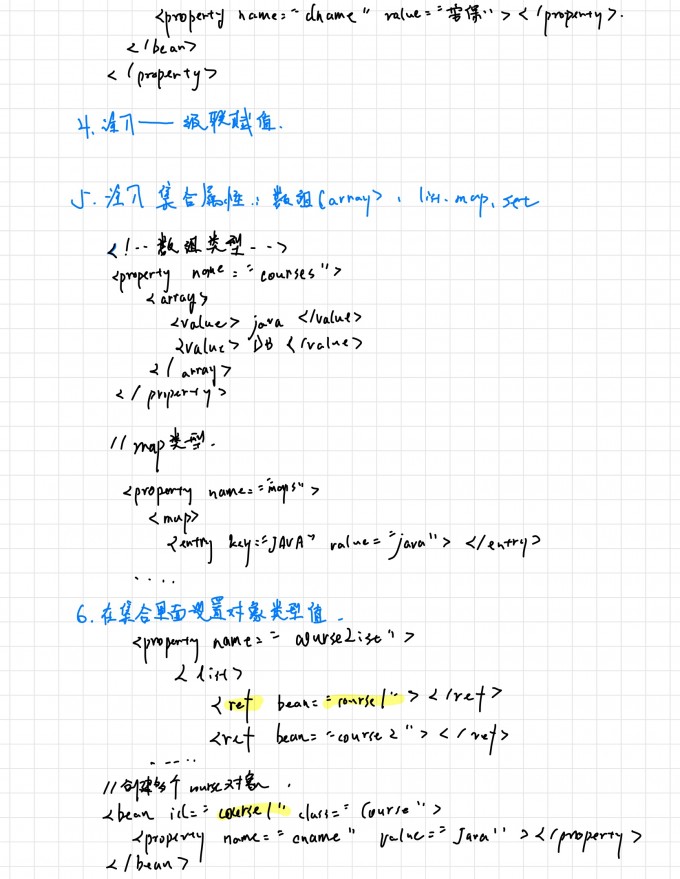 <property name="dname" value="安保"></property>.
</bean>
</property>
4. 注入——级联赋值.
5. 注入集合属性: 数组(array>, list. map, set
<!--数组类型-->
<property name="courses">
<array>
<value> java </value>
<value> DB </value>
</array>
</property>
//map类型.
<property name="maps">
<map>
<entry key="JAVA" value="java"></entry>
....
6. 在集合里面设置对象类型值.
<property name="courseList">
<list>
<ref bean="course1"></ref>
<ref bean="course2"></ref>
.....
//创建多个course对象.
<bean id="course1" class="Course">
<property name="cname" value="Java"></property>
</bean>